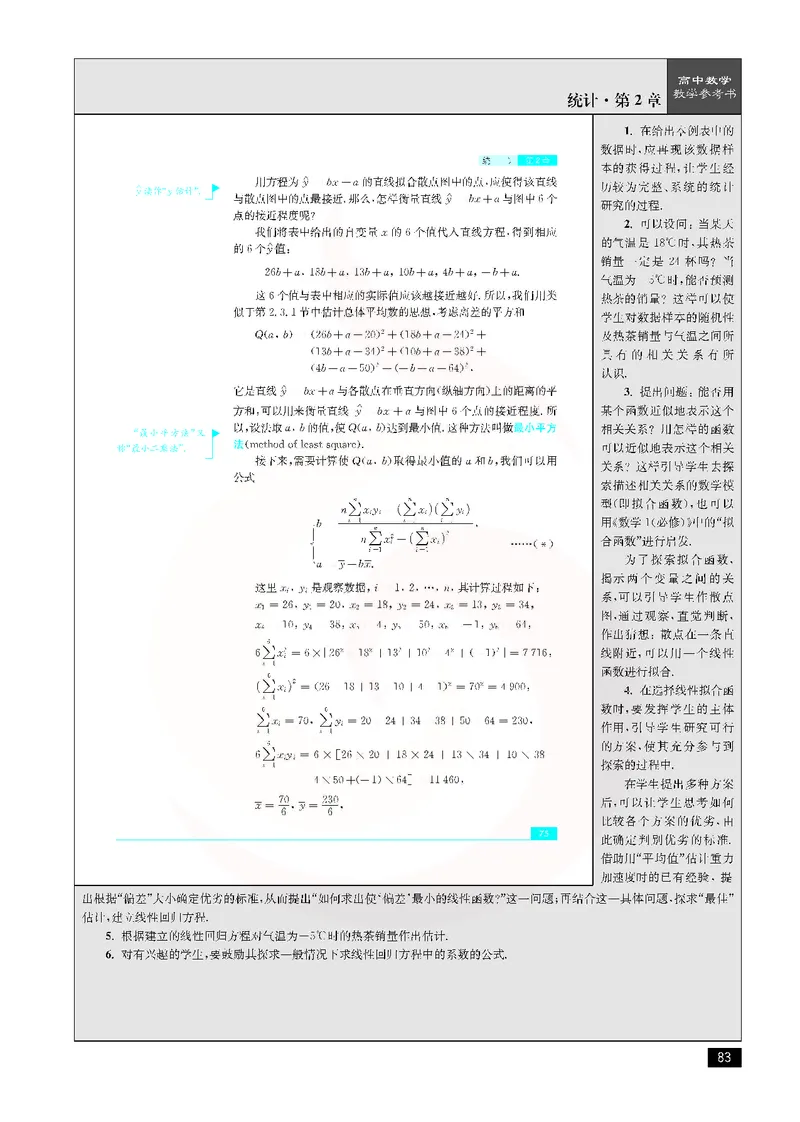 高中数学
教学参考书
统计·第2章
统 第2章
用方程为ŷ=bx+a的直线拟合散点图中的点,应使得该直线
与散点图中的点最接近.那么,怎样衡量直线ŷ=bx+a与图中6个
点的接近程度呢?
我们将表中给出的自变量x的6个值代入直线方程,得到相应
的6个ŷ值:
26b+a,18b+a,13b+a,10b+a,4b+a,-b+a.
这6个值与表中相应的实际值应该越接近越好.所以,我们用类
似于第2.3.1节中估计总体平均数的思想,考虑离差的平方和
Q(a,b)=(26b+a-20)²+(18b+a-24)²+
(13b+a-34)²+(10b+a-38)²+
(4b+a-50)²+(-b+a-64)².
它是直线ŷ=bx+a与各散点在垂直方向(纵轴方向)上的距离的平
方和,可以用来衡量直线ŷ=bx+a与图中6个点的接近程度.所
以,设法取a,b的值,使Q(a,b)达到最小值.这种方法叫做最小平方
法(method of least square).
接下来,需要计算使Q(a,b)取得最小值的a和b,我们可以用
公式
b=(n∑xᵢyᵢ-(∑xᵢ)(∑yᵢ))/(n∑xᵢ²-(∑xᵢ)²),
a=ȳ-bx̄. ……(*)
这里xᵢ,yᵢ是观察数据,i=1,2,…,n.其计算过程如下:
x₁=26,y₁=20,x₂=18,y₂=24,x₃=13,y₃=34,
x₄=10,y₄=38,x₅=4,y₅=50,x₆=-1,y₆=64,
6∑xᵢ²=6×[26²+18²+13²+10²+4²+(-1)²]=7 716,
(∑xᵢ)²=(26+18+13+10+4-1)²=70²=4 900,
∑xᵢ=70,∑yᵢ=20+24+34+38+50+64=230,
6∑xᵢyᵢ=6×[26×20+18×24+13×34+10×38
+4×50+(-1)×64]=11 460,
x̄=70/6,ȳ=230/6,
75
ŷ读作“y估计”.
“最小平方法”又
称“最小二乘法”.
1. 在给出本例表中的
数据时,应再现该数据样
本的获得过程,让学生经
历较为完整、系统的统计
研究的过程.
2. 可以设问:当某天
的气温是18℃时,其热茶
销量一定是24杯吗?当
气温为-5℃时,能否预测
热茶的销量?这样可以使
学生对数据样本的随机性
及热茶销量与气温之间所
具有的相关关系有所
认识.
3. 提出问题:能否用
某个函数近似地表示这个
相关关系?用怎样的函数
可以近似地表示这个相关
关系?这样引导学生去探
索描述相关关系的数学模
型(即拟合函数),也可以
用《数学1(必修)》中的“拟
合函数”进行启发.
为了探索拟合函数,
揭示两个变量之间的关
系,可以引导学生作散点
图,通过观察、直觉判断,
作出猜想:散点在一条直
线附近,可以用一个线性
函数进行拟合.
4. 在选择线性拟合函
数时,要发挥学生的主体
作用,引导学生研究可行
的方案,使其充分参与到
探索的过程中.
在学生提出多种方案
后,可以让学生思考如何
比较各个方案的优劣、由
此确定判别优劣的标准.
借助用“平均值”估计重力
加速度时的已有经验,提
出根据“偏差”大小确定优劣的标准,从而提出“如何求出使‘偏差’最小的线性函数?”这一问题;再结合这一具体问题,探求“最佳”
估计,建立线性回归方程.
5. 根据建立的线性回归方程对气温为-5℃时的热茶销量作出估计.
6. 对有兴趣的学生,要鼓励其探求一般情况下求线性回归方程中的系数的公式.
83